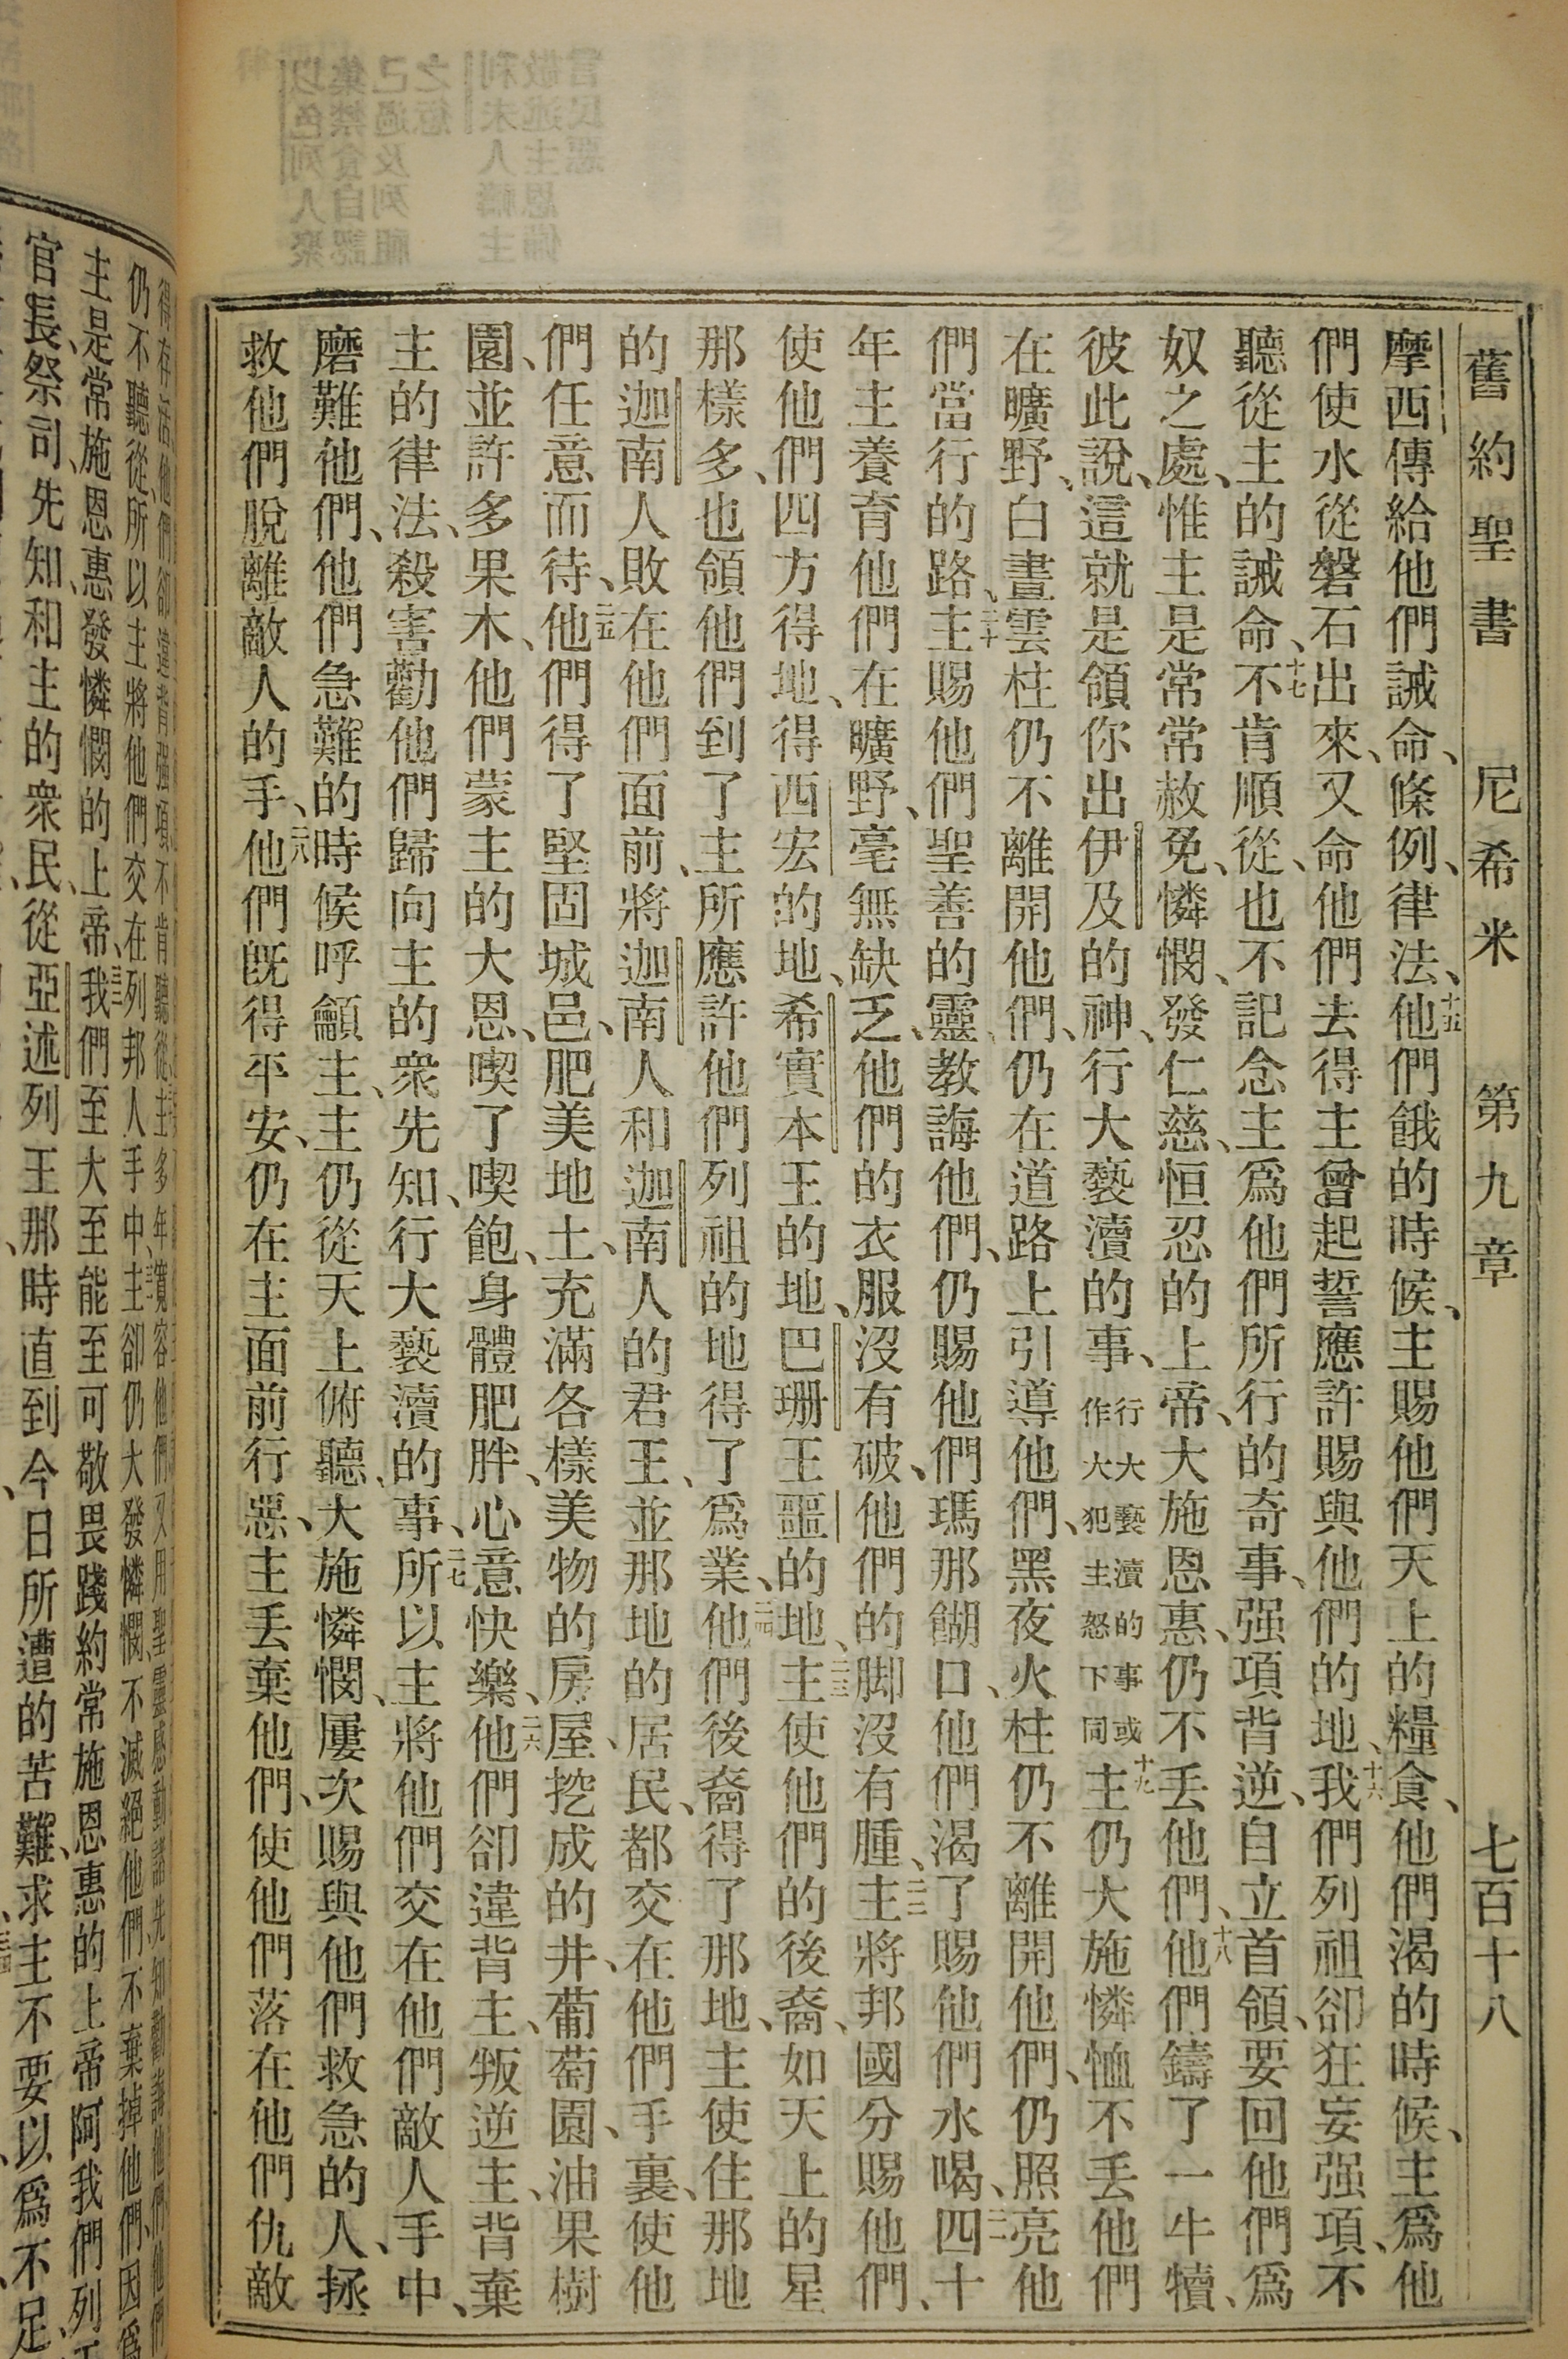 舊約聖書 尼希米 第九章 七百十八
摩西傳給他們誡命、條例、律法、十五他們餓的時候、主賜他們天上的糧食、他們渴的時候、主爲他
們使水從磐石出來、又命他們去得主曾起誓應許賜與他們的地、十六我們列祖卻狂妄强項、不
聽從主的誡命、十七不肯順從、也不記念主爲他們所行的奇事、强項背逆、自立首領、要回他們爲
奴之處、惟主是常常赦免、憐憫、發仁慈、恒忍的上帝、大施恩惠、仍不丢他們、十八他們鑄了一牛犢、
彼此說、這就是領你出伊及的神、行大褻瀆的事、行大褻瀆的事或作大犯主怒下同十九主仍大施憐恤不丢他們
在曠野、白晝雲柱仍不離開他們、仍在道路上引導他們、黑夜火柱仍不離開他們、仍照亮他
們當行的路、二十主賜他們聖善的靈、教誨他們、仍賜他們瑪那餬口、他們渴了賜他們水喝、二一四十
年主養育他們在曠野、毫無缺乏、他們的衣服沒有破、他們的脚沒有腫、二二主將邦國分賜他們、
使他們四方得地、得西宏的地、希實本王的地、巴珊王噩的地、二三主使他們的後裔、如天上的星
那樣多、也領他們到了主所應許他們列祖的地得了爲業、二四他們後裔得了那地、主使住那地
的迦南人敗在他們面前、將迦南人和迦南人的君王、並那地的居民、都交在他們手裏、使他
們任意而待、二五他們得了堅固城邑、肥美地土、充滿各樣美物的房屋、挖成的井、葡萄園、油果樹
園、並許多果木、他們蒙主的大恩、喫了喫飽、身體肥胖、心意快樂、二六他們卻違背主、叛逆主、背棄
主的律法、殺害勸他們歸向主的衆先知、行大褻瀆的事、二七所以主將他們交在他們敵人手中、
磨難他們、他們急難的時候呼籲主、主仍從天上俯聽、大施憐憫、屢次賜與他們救急的人、拯
救他們脫離敵人的手、二八他們旣得平安、仍在主面前行惡、主丢棄他們、使他們落在他們仇敵
仍不聽從、所以主將他們交在列邦人手中、主卻仍大發憐憫、不滅絕他們、不棄掉他們、因爲
主是常施恩惠、發憐憫的上帝、我們至大至能至可敬畏踐約常施恩惠的上帝阿我們列
官長、祭司、先知、和主的衆民、從亞述列王那時直到今日所遭的苦難、求主不要以爲不足